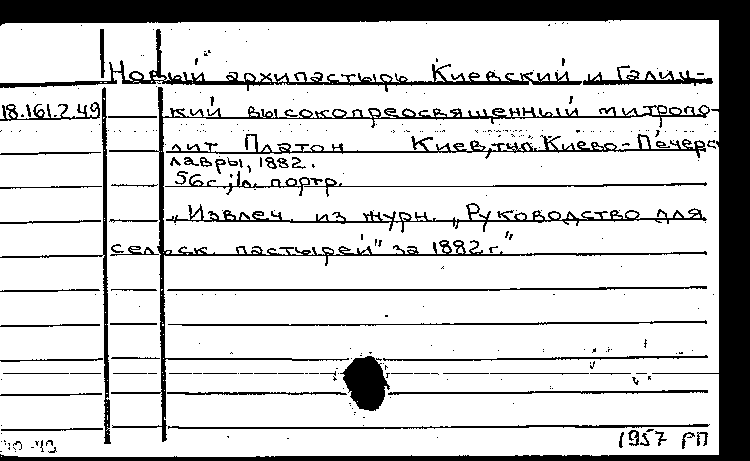 Новый архипастырь Киевский и Галиц-
18.161.2.49 кий высокопреосвященный митропо-
лит Платон Киев, тип. Киево-Печерс
лавры, 1882.
56с., 1л. портр.
„Извлеч. из журн. „Руководство для
сельск. пастырей" за 1882г."
1957 РП